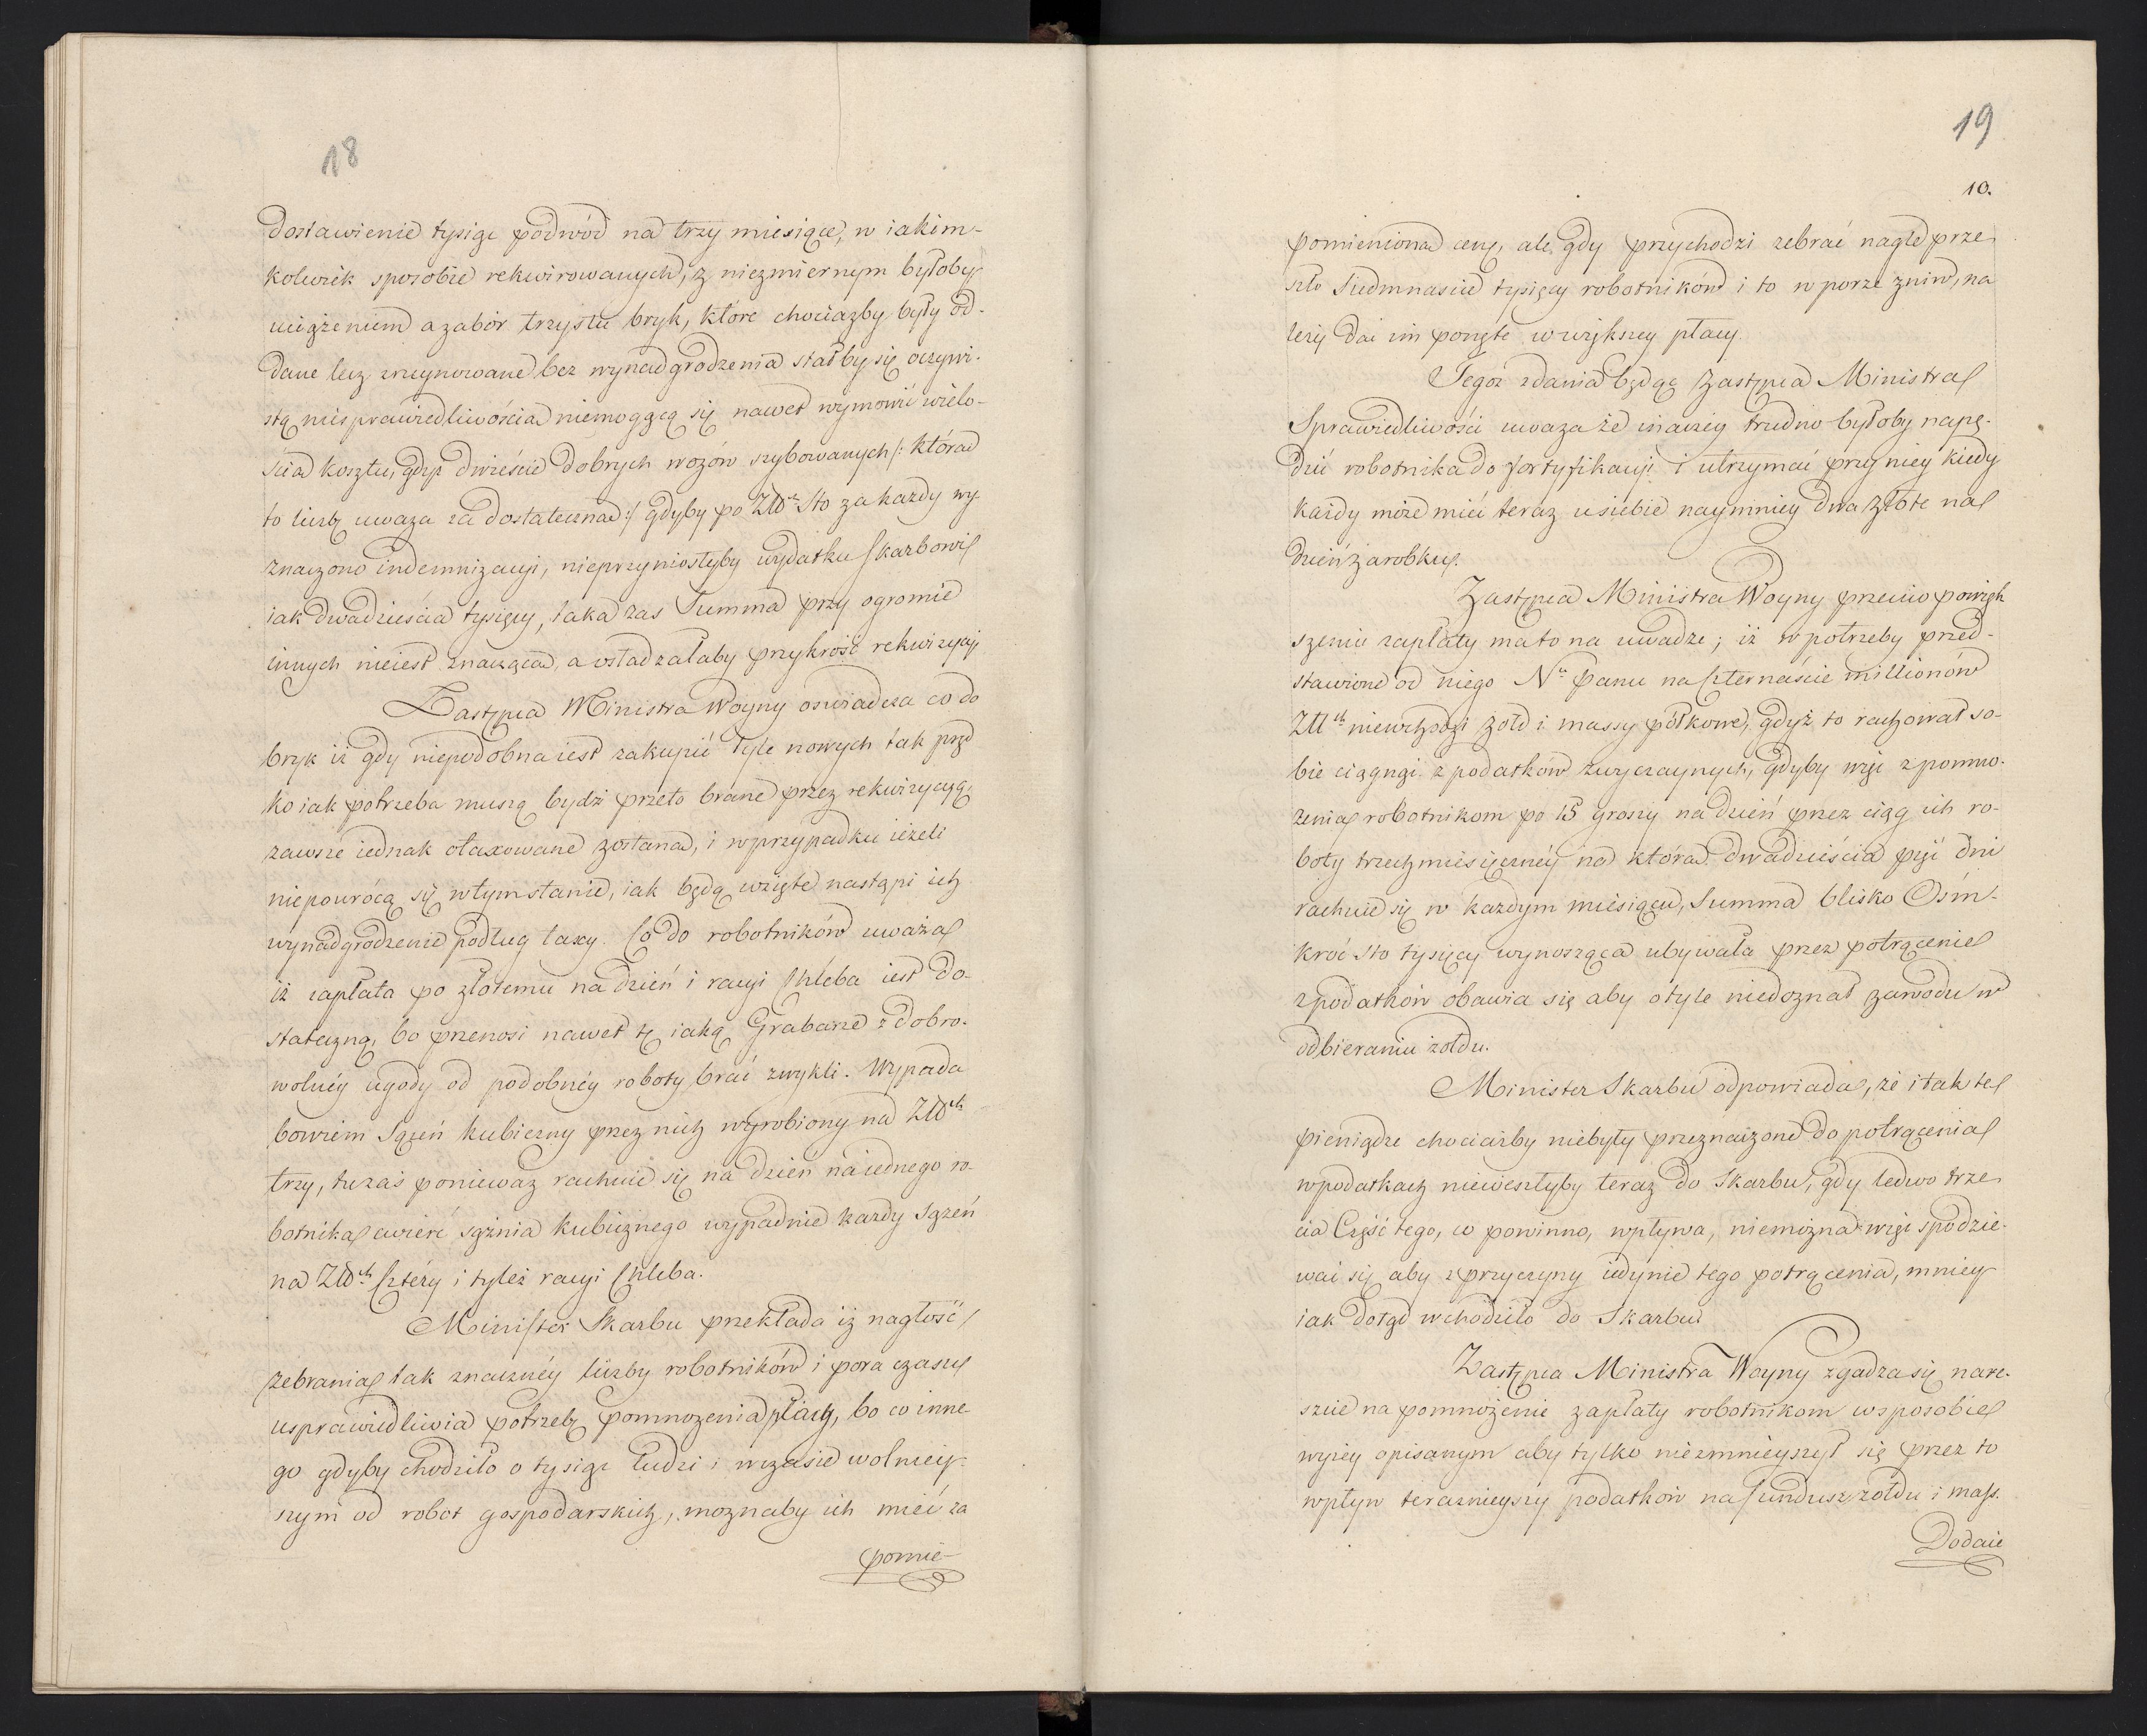 18
dostawienie tysiąc podwód na trzy miesiące, w iakim-
kolwiek sposobie rekwirowanych, z niezmiernym byłoby
uciążeniem a zabór trzystu bryk, które chociażby były od-
dane lecz zruynowane bez wynadgrodzenia stałby się oczywi-
stą niesprawiedliwością niemogącą się nawet wymówić wielo-
ścią kosztu, gdyż dwieście dobrych wozów szybowanych /: którą
to liczbę uważa za dostateczną :/ gdyby po Złłch sto za każdy wy-
znaczono indemnizacyi, nieprzyniosłyby wydatku Skarbowi
iak dwadzieścia tysięcy, taka zaś Summa przy ogromie
innych nieiest znaczącą, a osładzałaby przykrość rekwizycyi
Zastępca Ministra Woyny oświadcza co do
bryk iż gdy niepodobna iest zakupić tyle nowych tak pręd
ko iak potrzeba muszą bydź przeto brane przez rekwizycyą,
zawsze iednak otaxowane zostaną, i w przypadku ieżeli
niepowrócą się w tym stanie, iak będą wzięte nastąpi ich
wynadgrodzenie podług taxy. Co do robotników uważa
iż zapłata po złotemu na dzień i racyi Chleba iest do-
stateczną, bo przenosi nawet tę iaką Grabarze z dobro-
wolnéy ugody od podobnéy roboty brać zwykli. Wypada
bowiem Sążeń kubiczny przez nich wyrobiony na Złłch
trzy, tu zaś ponieważ rachuie się na dzień na iednego ro-
botnika ćwierć sążnia kubicznego wypadnie każdy Sążeń
na Złłch Cztéry i tyleż racyi Chleba.
Minister Skarbu przekłada iż nagłość
zebrania tak znacznéy liczby robotników i pora czasu
usprawiedliwia potrzebę pomnożenia płacy, bo co inne-
go gdyby chodziło o tysiąc ludzi i w czasie wolniey-
szym od robot gospodarskich, możnaby ich mieć za
pomie-
19
10.
pomienioną cenę, ale gdy przychodzi zebrać nagle prze
szło Siedmnaście tysięcy robotników i to w porze żniw, na
leży dać im ponętę w większey płacy.
Tegoż zdania będąc Zastępca Ministra
Sprawiedliwości uważa że inaczey trudno byłoby napę-
dzić robotnika do fortyfikacyi i utrzymać przy niey kiedy
każdy może mieć teraz u siebie naymniey dwa złote na
dzień zarobku.
Zastępca Ministra Woyny przeciw powięk
szeniu zapłaty ma to na uwadze; iż w potrzeby przed-
stawione od niego Nu Panu na Czternaście millionów
Złłch niewchodzi żołd i massy półkowe, gdyż to rachował so-
bie ciągnąć z podatków zwyczaynych, gdyby więc z pomno-
żenia robotnikom po 15 groszy na dzień przez ciąg ich ro-
boty trzechmiesięcznéy na którą dwadzieścia pięć dni
rachuie się w każdym miesiącu, Summa blisko Ośm-
kroć sto tysięcy wynosząca ubywała przez potrącenie
z podatków obawia się aby o tyle niedoznał zawodu w
odbieraniu żołdu.
Minister Skarbu odpowiada, że i tak te
pieniądze chociażby niebyły przeznaczone do potrącenia
w podatkach nieweszłyby teraz do Skarbu, gdy ledwo trze
cia Część tego, co powinno, wpływa, niemożna więc spodzie-
wać się aby z przyczyny iedynie tego potrącenia, mniey
iak dotąd wchodziło do Skarbu.
Zastępca Ministra Woyny zgadza się nare-
szcie na pomnożenie zapłaty robotnikom w sposobie
wyżey opisanym aby tylko niezmnieyszył się przez to
wpływ teraźnieyszy podatków na fundusz żołdu i mass.
Dodaie